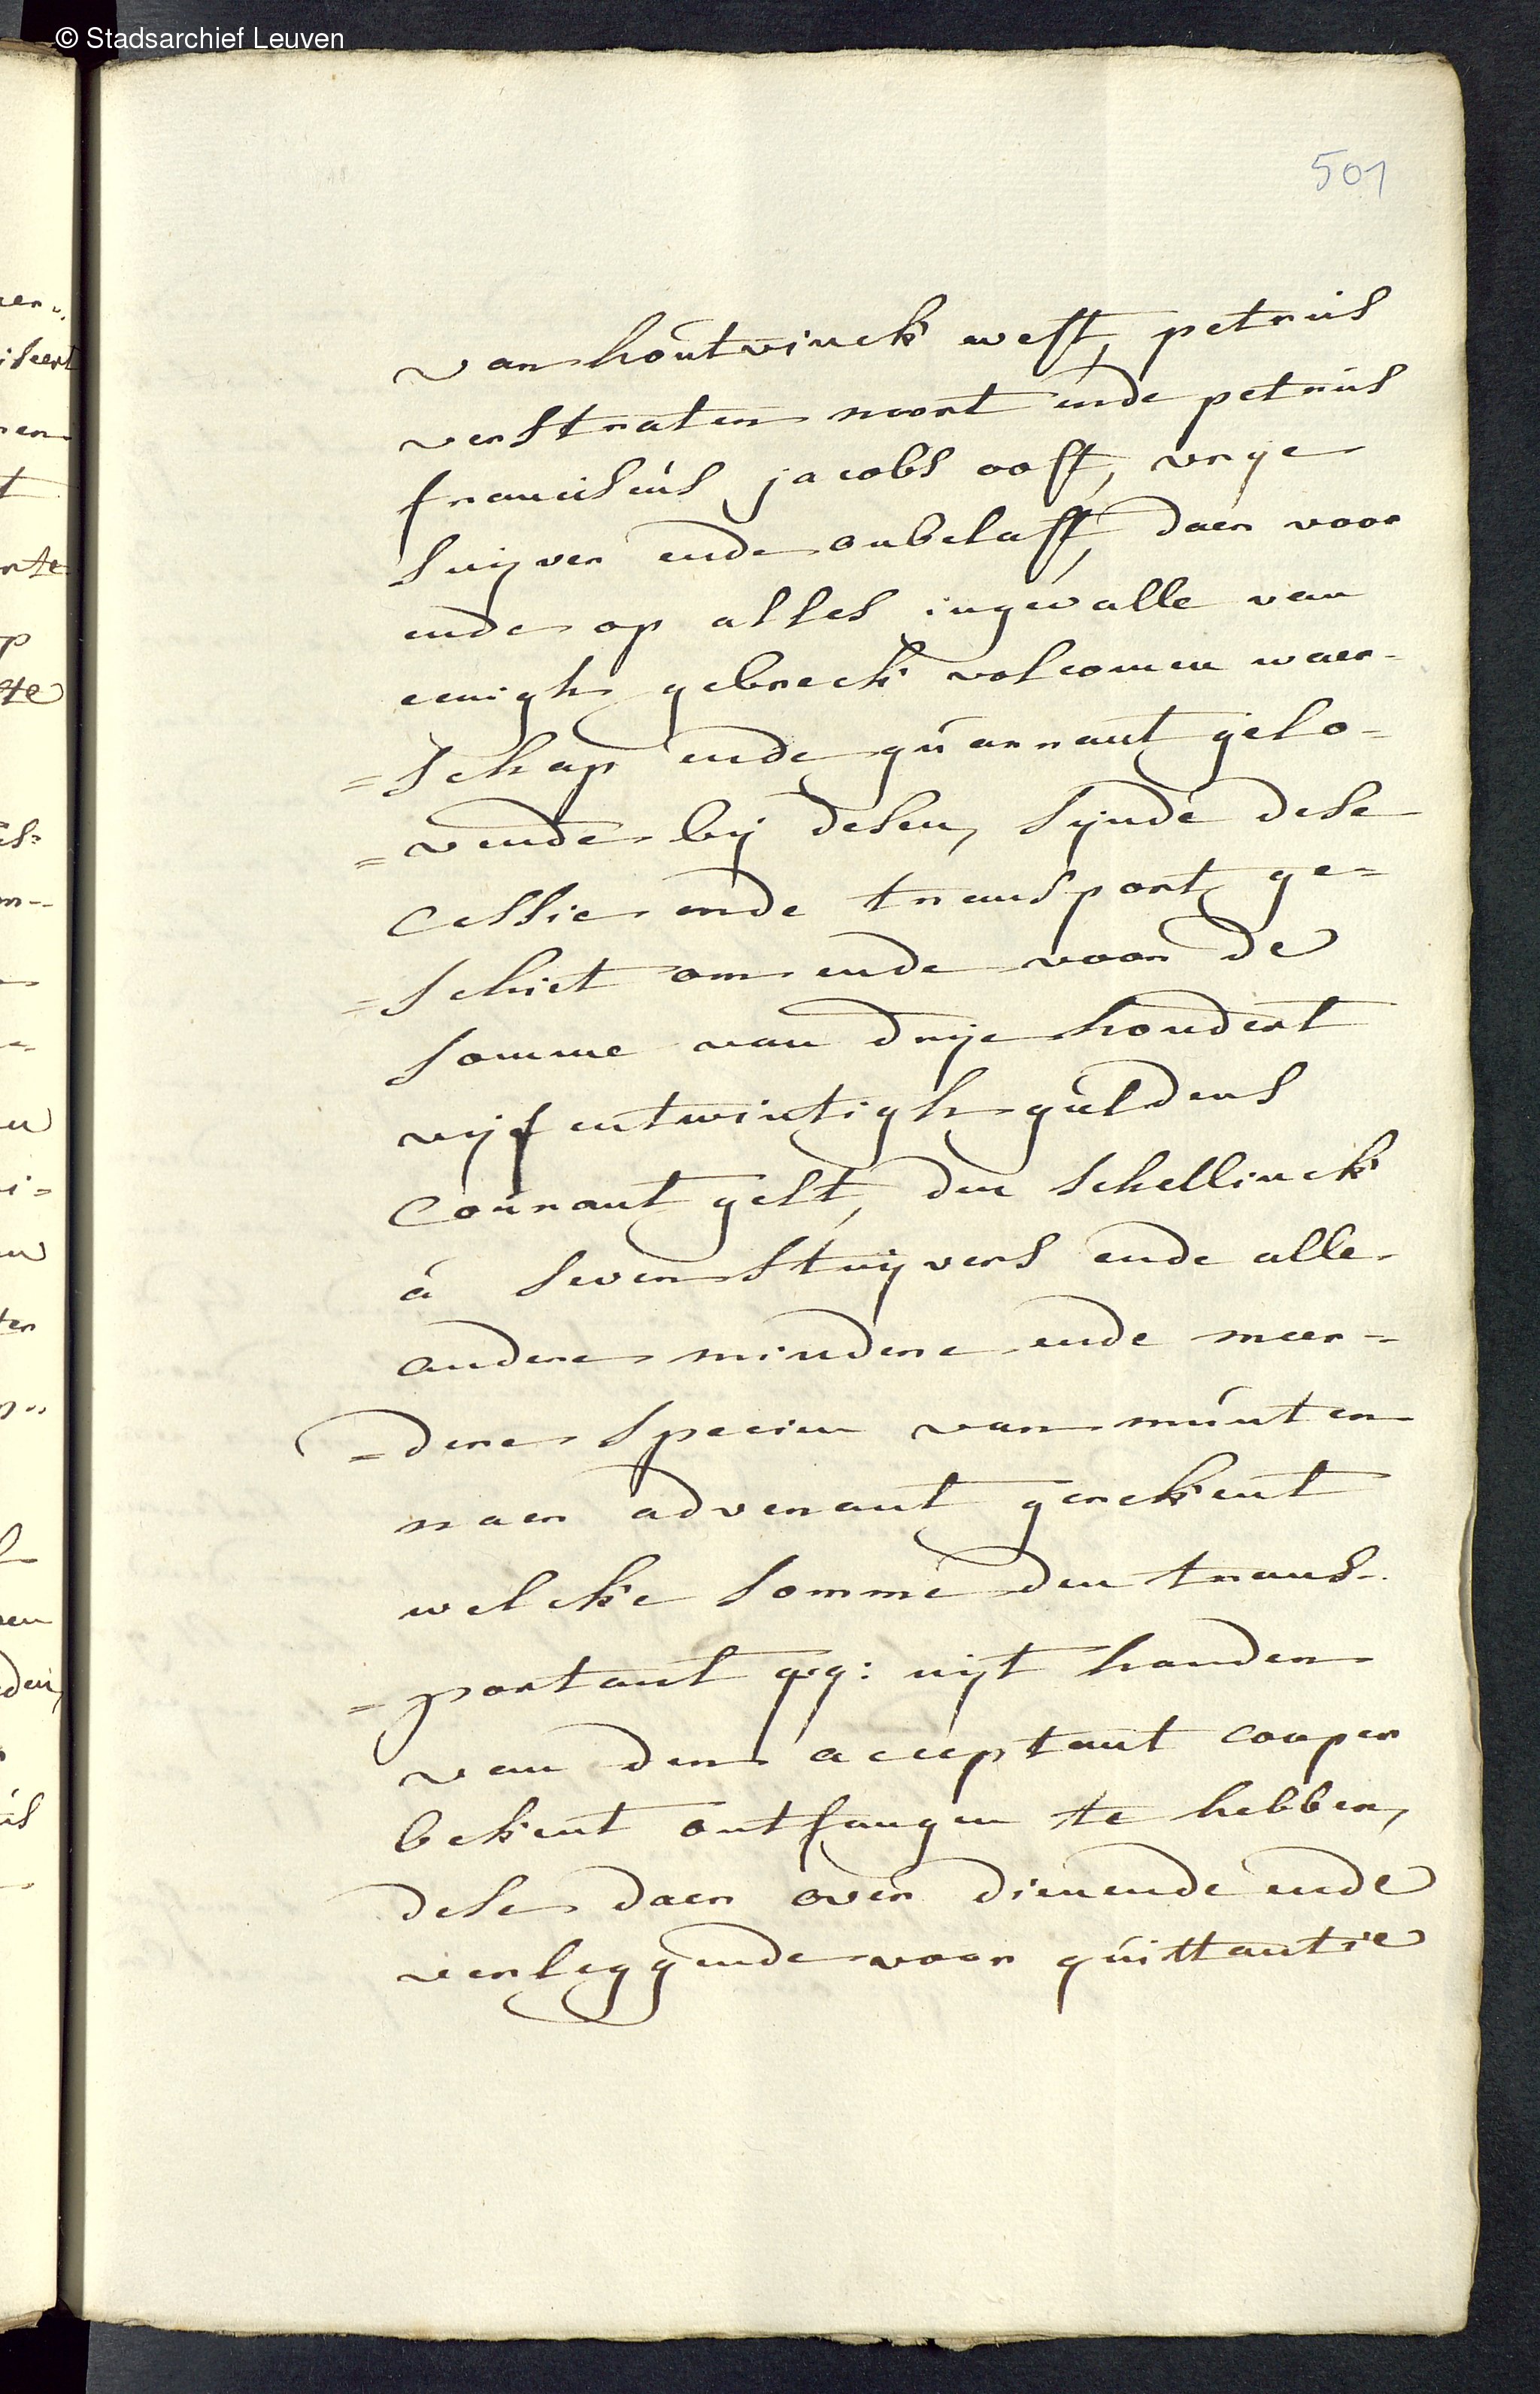 © Stadsarchief Leuven
501
van houtvinck west, petrus
verstraten noort ende petrus
franciscus jacobs oost, vrije
suijver ende onbelast, daer voor
ende op alles ingevalle van
eenigh gebreck volcomen waer-
=schap ende guarrant gelo=
=vende bij desen, sijnde dese
cessie ende transport ge=
=schiet om ende voor de
somme van drije hondert
vijfentwintigh guldens
courant gelt, den schellinck
à seven stuijvers ende alle
andere mindere ende meer=
=dere specien van munten
naer advenant gerekent
welcke somme den trans-
=portant qq: uijt handen
van den acceptant cooper
bekent ontfangen te hebben,
dese daer over dienende ende
verleggende voor quittantie